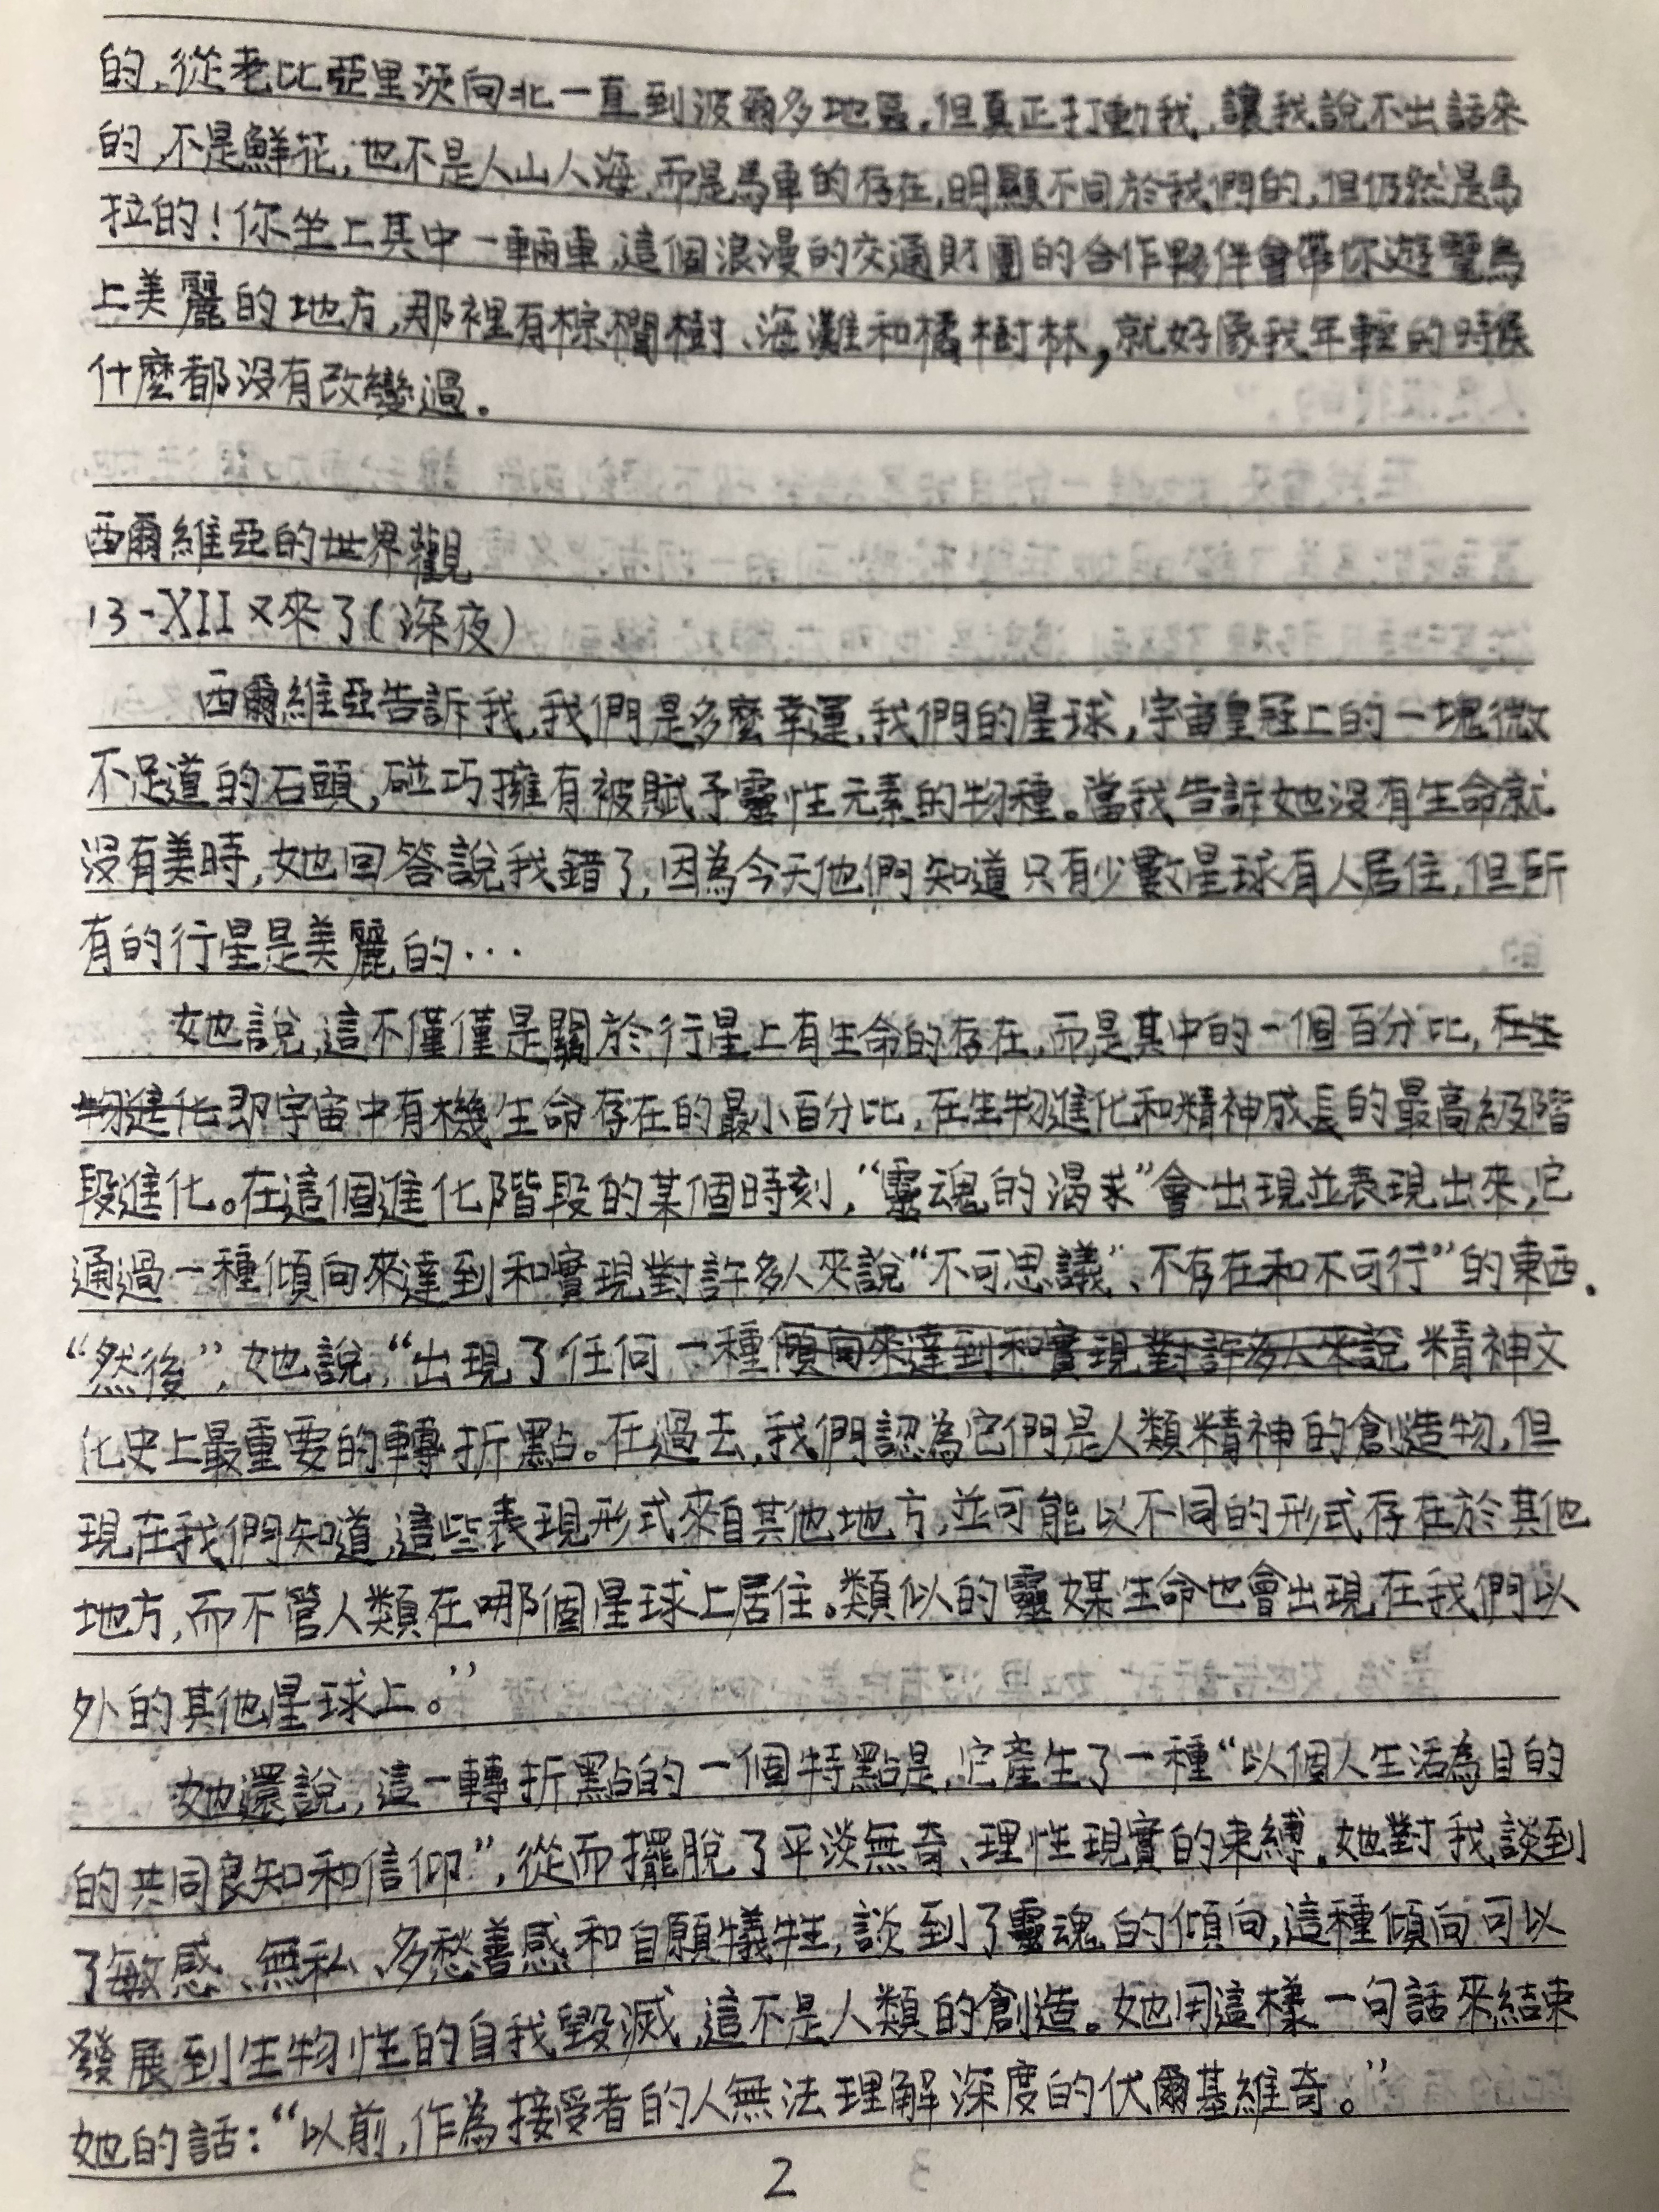 的,從老比亞里茨向北一直到波爾多地區,但真正打動我,讓我說不出話來
的,不是鮮花,也不是人山人海,而是馬車的存在,明顯不同於我們的,但仍然是馬
拉的!你坐上其中一輛車,這個浪漫的交通財團的合作夥伴會帶你遊覽島
上美麗的地方,那裡有棕櫚樹、海灘和橘樹林,就好像我年輕的時候
什麼都沒有改變過。
西爾維亞的世界觀
13-XII又來了(深夜)
西爾維亞告訴我,我們是多麼幸運,我們的星球,宇宙皇冠上的一塊微
不足道的石頭,碰巧擁有被賦予靈性元素的物種。當我告訴她沒有生命就
沒有美時,她回答說我錯了,因為今天他們知道只有少數星球有人居住,但所
有的行星是美麗的...
她說,這不僅僅是關於行星上有生命的存在,而是其中的一個百分比,在生
物進化即宇宙中有機生命存在的最小百分比,在生物進化和精神成長的最高級階
段進化。在這個進化階段的某個時刻,“靈魂的渴求”會出現並表現出來,它
通過一種傾向來達到和實現對許多人來說“不可思議”、不存在和不可行”的東西.
“然後”,她說,“出現了任何一種傾向來達到和實現對許多人來說精神文
化史上最重要的轉折點。在過去,我們認為它們是人類精神的創造物,但
現在我們知道,這些表現形式來自其他地方,並可能以不同的形式存在於其他
地方,而不管人類在哪個星球上居住。類似的靈媒生命也會出現在我們以
外的其他星球上。”
她還說,這一轉折點的一個特點是,它產生了一種“以個人生活為目的
的共同良知和信仰”,從而擺脫了平淡無奇、理性現實的束縛.她對我談到
了敏感、無私、多愁善感和自願犧牲,談到了靈魂的傾向,這種傾向可以
發展到生物性的自我毀滅,這不是人類的創造。她用這樣一句話來結束
她的話:“以前,作為接受者的人無法理解深度的伏爾基維奇。”
2